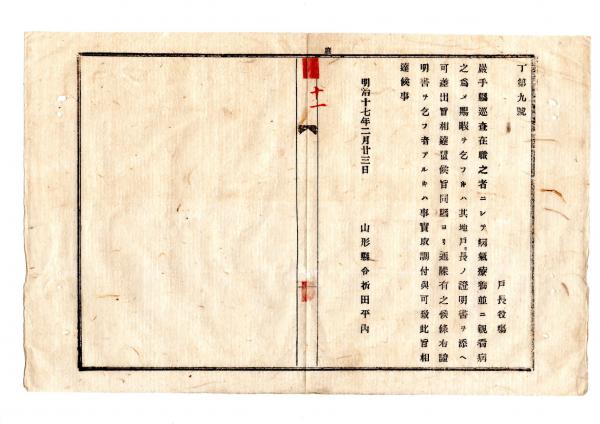 丁第九號
戸長役塲
巖手縣巡査在職之者ニシテ病氣療養並ニ親看病
之爲メ賜暇ヲ乞フルハ其地戸長ノ證明書ヲ添ヘ
可差出旨相達置候旨同縣ヨリ通牒有之候條右證
明書ヲ乞フ者アルキハ事實取調付與可致此旨相
達候事
明治十七年二月廿三日
山形縣令折田平內
十一